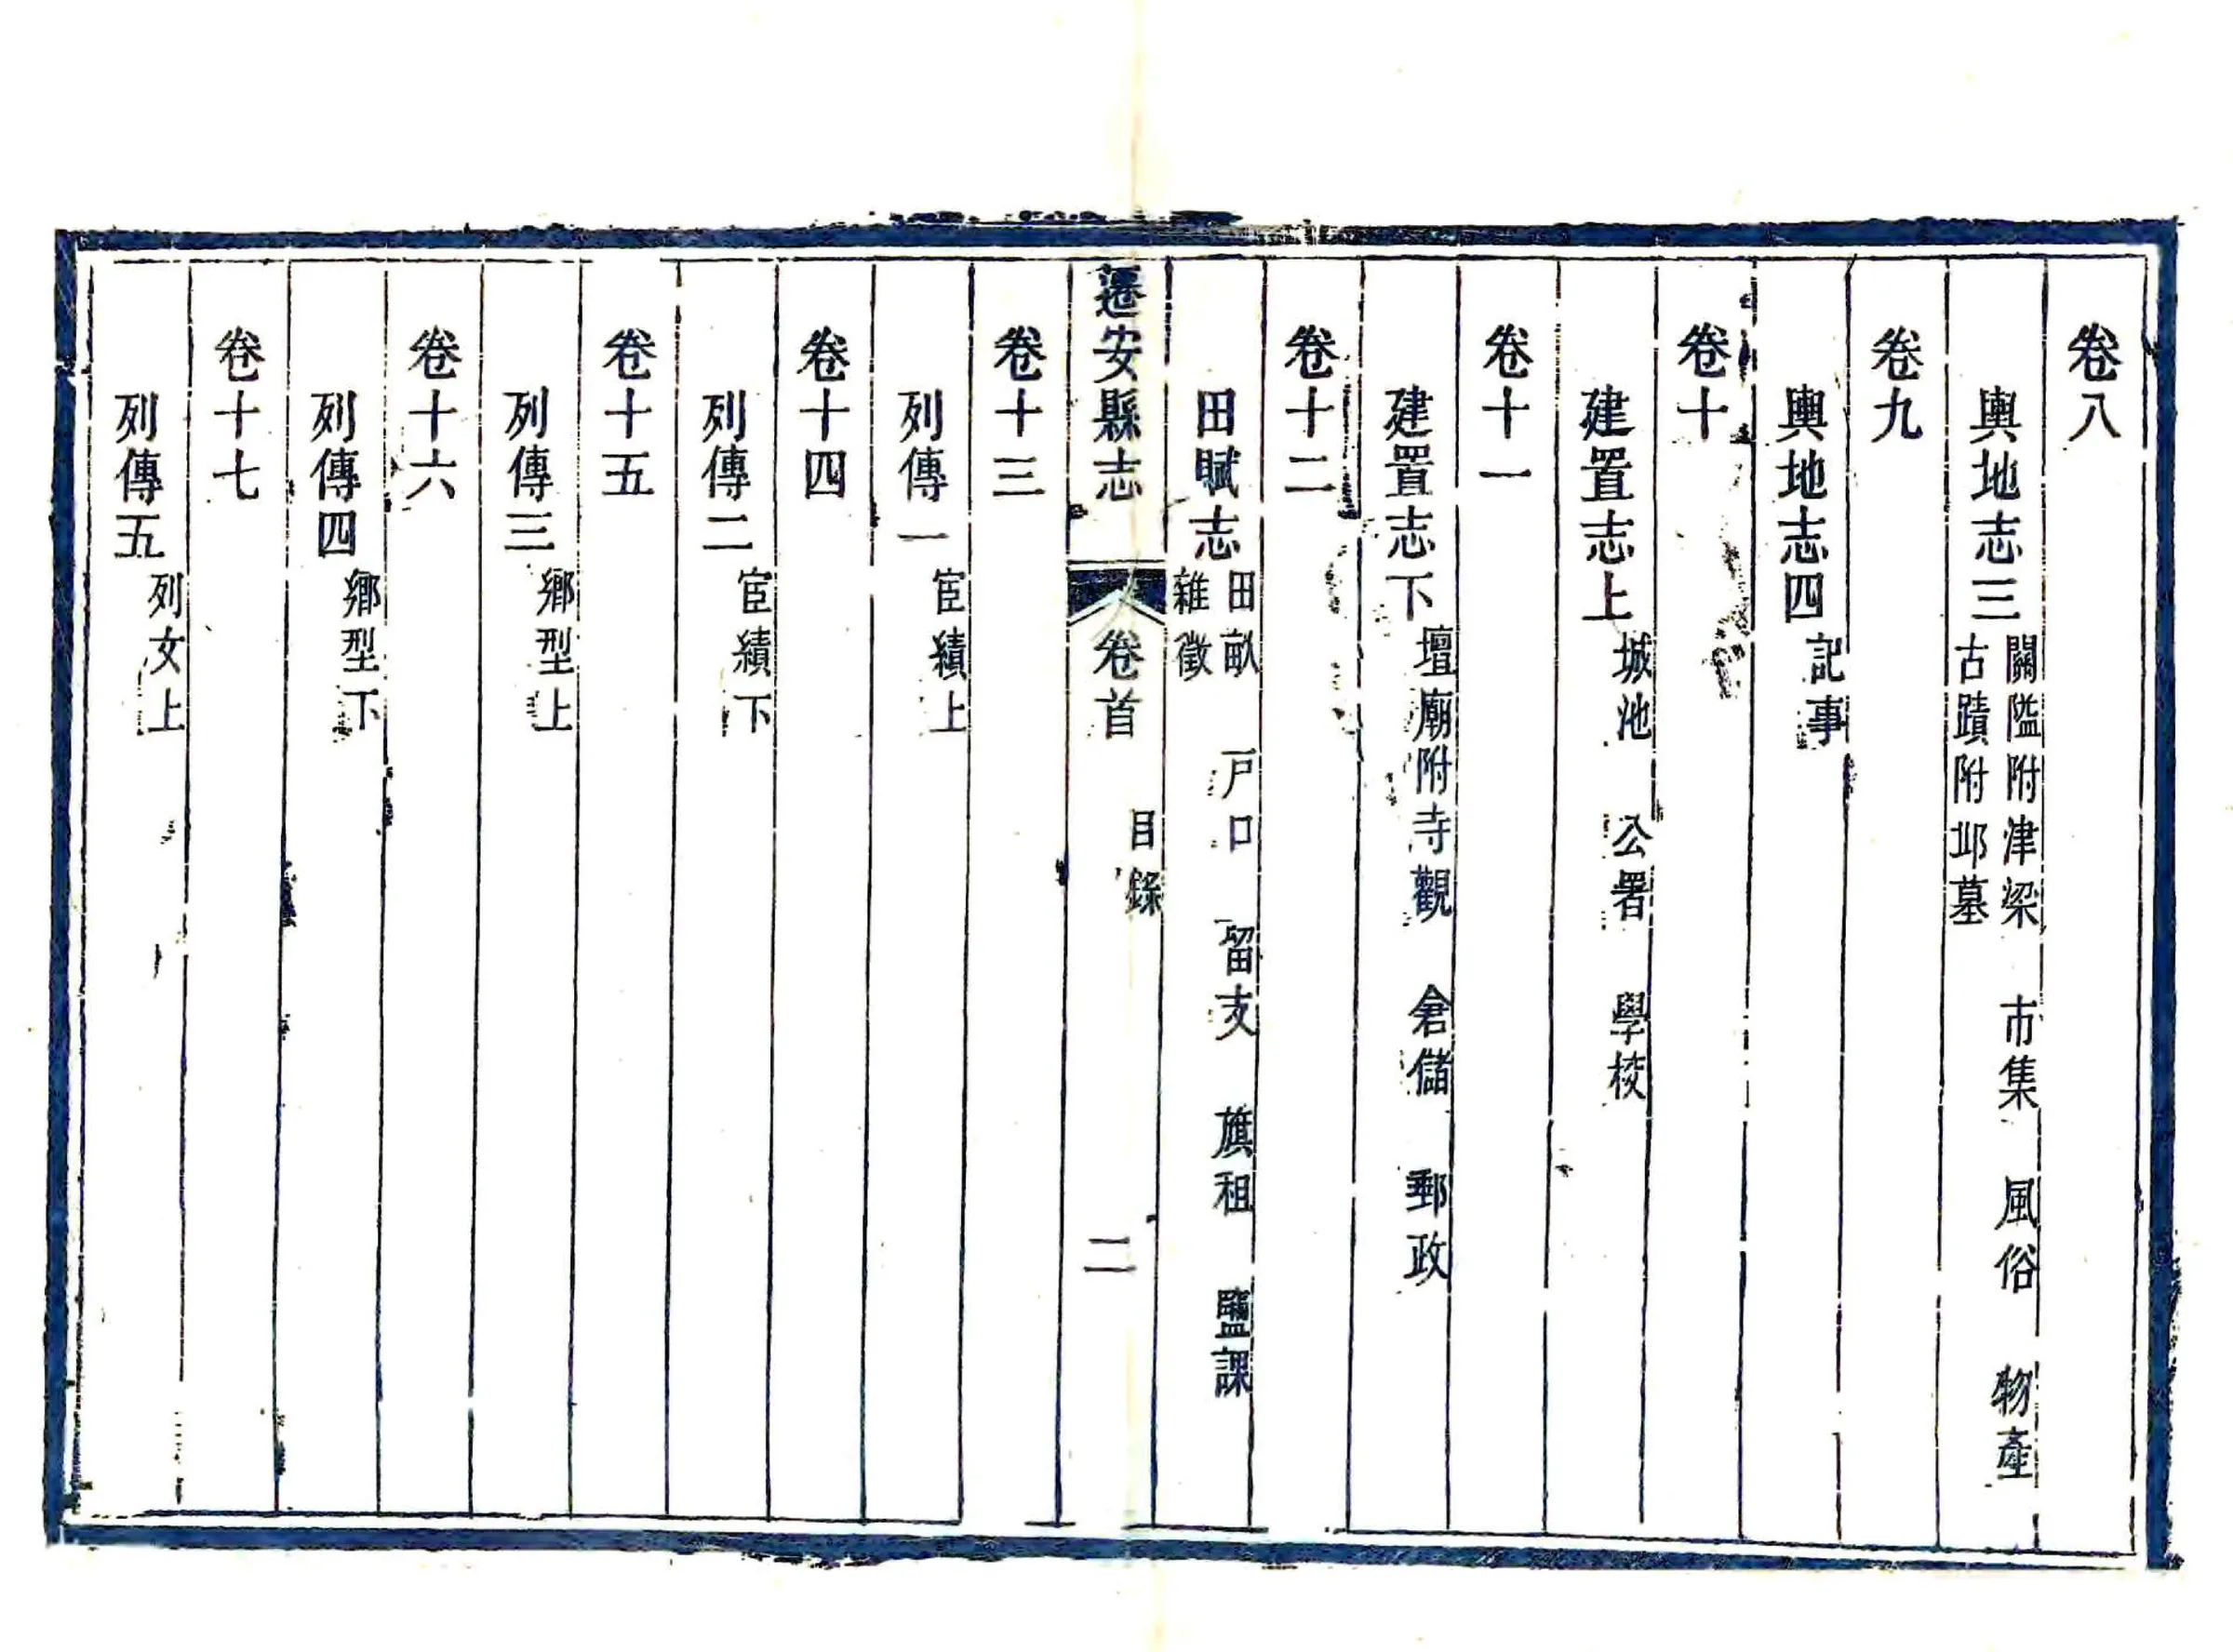 卷八
輿地志三 關隘附津梁 市集 風俗 物產
古蹟附邱墓
卷九
輿地志四 記事
卷十
建置志上 城池 公署 學校
卷十一
建置志下 壇廟附寺觀 倉儲 郵政
卷十二
田賦志 田畝 戶口 留支 旗租 鹽課
雜徵
遷安縣志 卷首 目錄 二
卷十三
列傳一 宦績上
卷十四
列傳二 宦績下
卷十五
列傳三 鄉型上
卷十六
列傳四 鄉型下
卷十七
列傳五 列女上